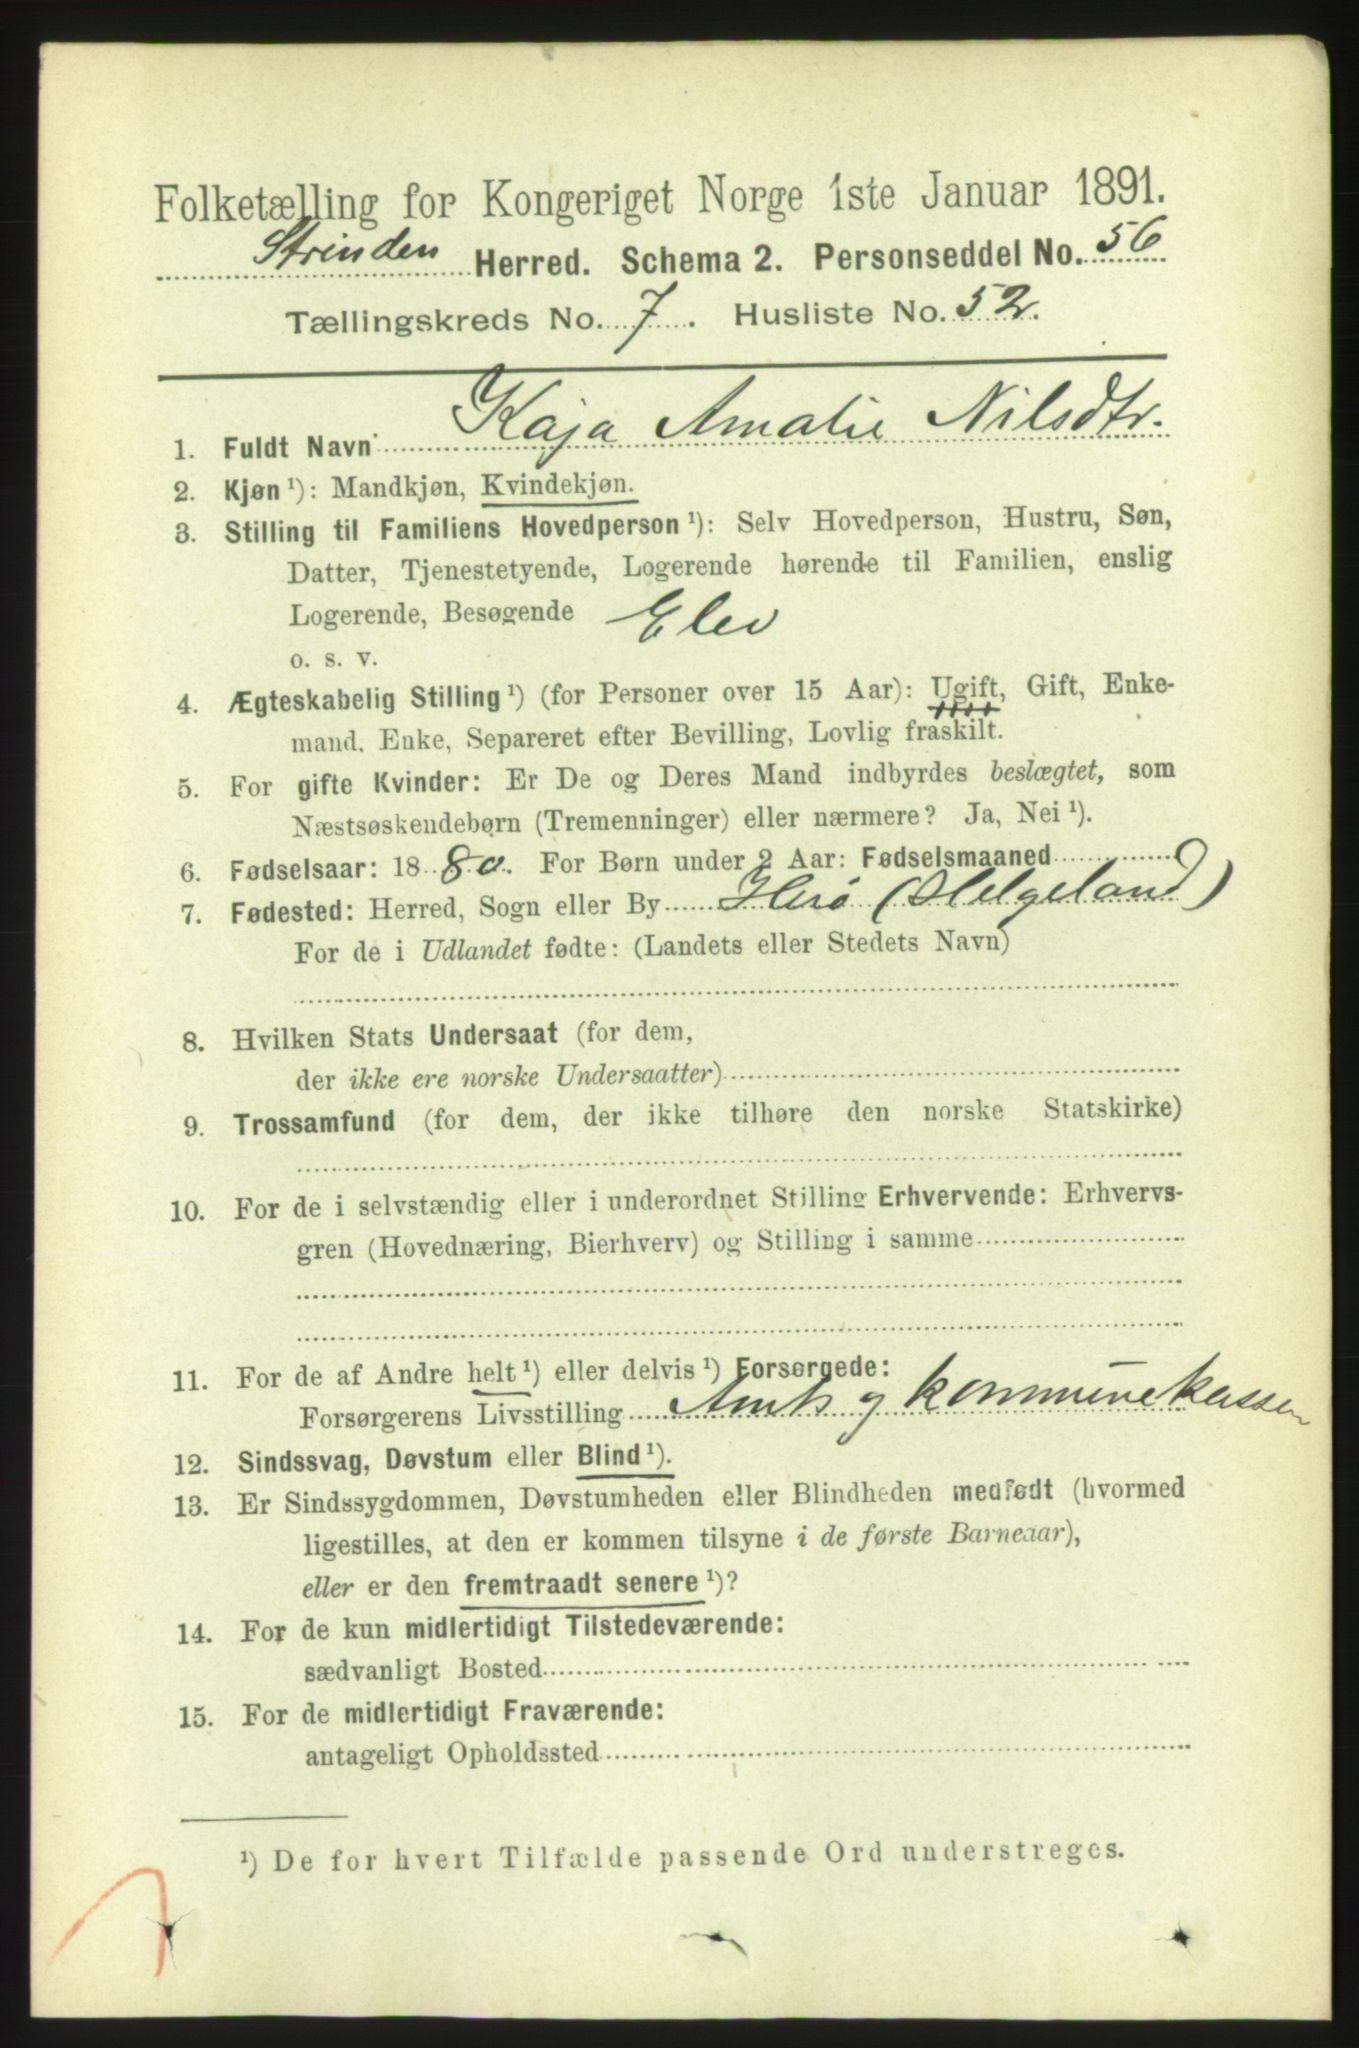 Folketælling for Kongeriget Norge 1ste Januar 1891.
Strinden Herred. Schema 2. Personseddel No. 56
Tællingskreds No. 7. Husliste No. 52.
1. Fuldt Navn Kaja Amalie Nilsdtr.
2. Kjøn ¹): Mandkjøn, Kvindekjøn.
3. Stilling til Familiens Hovedperson ¹): Selv Hovedperson, Hustru, Søn,
Datter, Tjenestetyende, Logerende hørende til Familien, enslig
Logerende, Besøgende Elev
o. s. v.
4. Ægteskabelig Stilling ¹) (for Personer over 15 Aar): Ugift, Gift, Enke-
mand, Enke, Separeret efter Bevilling, Lovlig fraskilt.
5. For gifte Kvinder: Er De og Deres Mand indbyrdes beslægtet, som
Næstsøskendebørn (Tremenninger) eller nærmere? Ja, Nei ¹).
6. Fødselsaar: 1880. For Børn under 2 Aar: Fødselsmaaned
7. Fødested: Herred, Sogn eller By Herø (Helgeland)
For de i Udlandet fødte: (Landets eller Stedets Navn)
8. Hvilken Stats Undersaat (for dem,
der ikke ere norske Undersaatter)
9. Trossamfund (for dem, der ikke tilhøre den norske Statskirke)
10. For de i selvstændig eller i underordnet Stilling Erhvervende: Erhvervs-
gren (Hovednæring, Bierhverv) og Stilling i samme
11. For de af Andre helt ¹) eller delvis ¹) Forsørgede:
Forsørgerens Livsstilling Amts og kommunekassen
12. Sindssvag, Døvstum eller Blind ¹).
13. Er Sindssygdommen, Døvstumheden eller Blindheden medfødt (hvormed
ligestilles, at den er kommen tilsyne i de første Barneaar),
eller er den fremtraadt senere ¹)?
14. For de kun midlertidigt Tilstedeværende:
sædvanligt Bosted
15. For de midlertidigt Fraværende:
antageligt Opholdssted
¹) De for hvert Tilfælde passende Ord understreges.